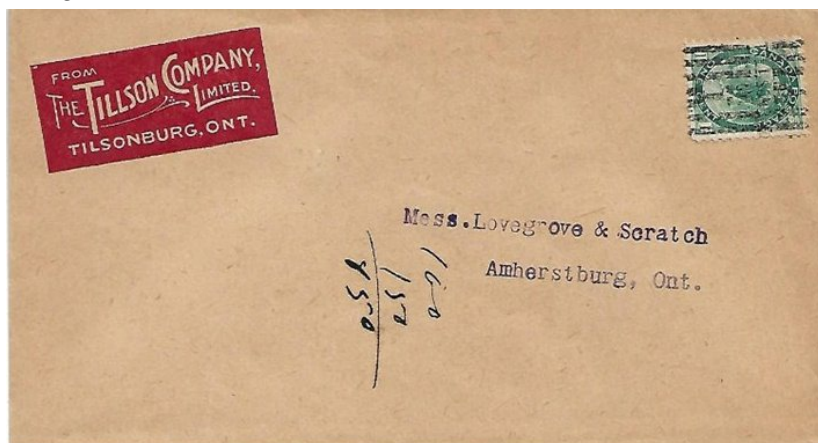 FROM
THE TILLSON COMPANY,
LIMITED.
TILSONBURG, ONT.
Mess. Lovegrove & Scratch
Amherstburg, Ont.